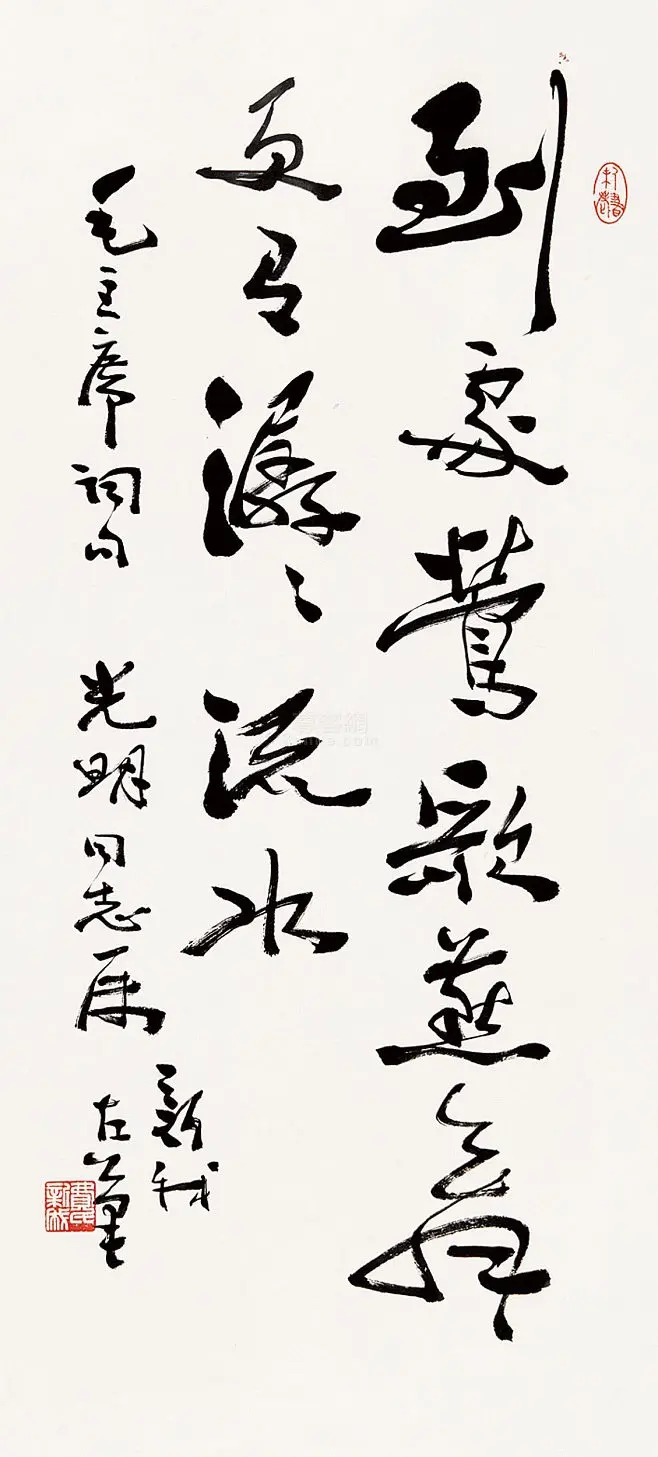 到處鶯歌燕舞
更有潺〻流水
毛主席詞句 光明同志属
新我
左筆